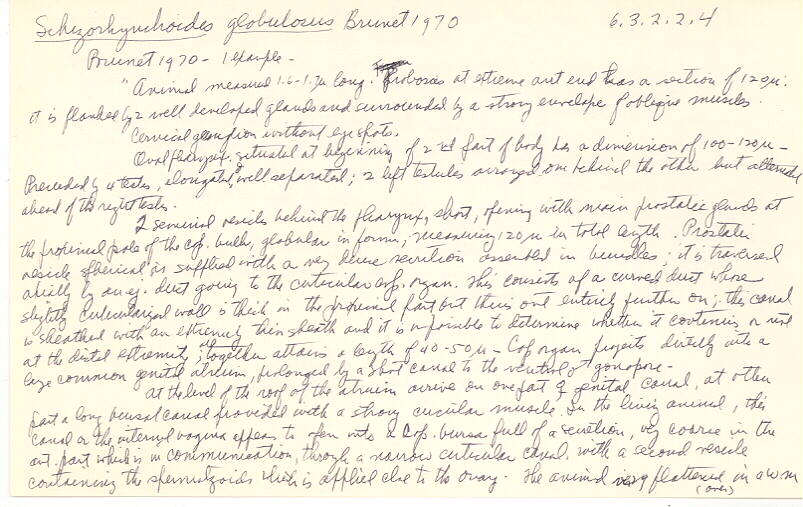 Schizorhynchoides globulosus Brunet 1970 6.3.2.2.4
Brunet 1970 - 1 example -
"Animal measured 1.6-1.7µ long. Proboscis at extreme ant end has a section of 120µ.
it is flanked by 2 well developed glands and surrounded by a strong envelope of oblique muscles.
Cervical ganglion without eyespots.
Oval pharynx situated at beginning of 2nd part of body has a dimension of 100-120µ -
Preceded by 4 testes, elongated, well separated; 2 left testicules arranged one behind the other but alternate
ahead of the right testes.
2 seminal vesicles behind the pharynx, short, opening with main prostatic glands at
the proximal pole of the cop. bulb, globular in form, measuring 120µ in total length. Prostatic
vesicle spherical is supplied with a very dense secretion assembled in bundles; it is traversed
axially by an ej. duct going to the cuticular cop. organ. This consists of a curved duct whose
slightly cuticularized wall is thick in the proximal part but thins out entirely further on; this canal
is sheathed with an extremely thin sheath and it is impossible to determine whether it continues or not
at the distal extremity; altogether attains a length of 40-50µ - Cop organ projects directly into a
large common genital atrium, prolonged by a short canal to the ventral gonopore -
at the level of the roof of the atrium arrive on one part ♀ genital canal, at other
part a long bursal canal provided with a strong circular muscle. In the living animal, this
canal or the internal vagina appears to open into a cop. bursa full of a secretion, very coarse in the
ant. part which is in communication, through a narrow cuticular canal. with a second vesicle
containing the spermatozoids which is applied close to the ovary. The animal very flattened in a w m
(over)